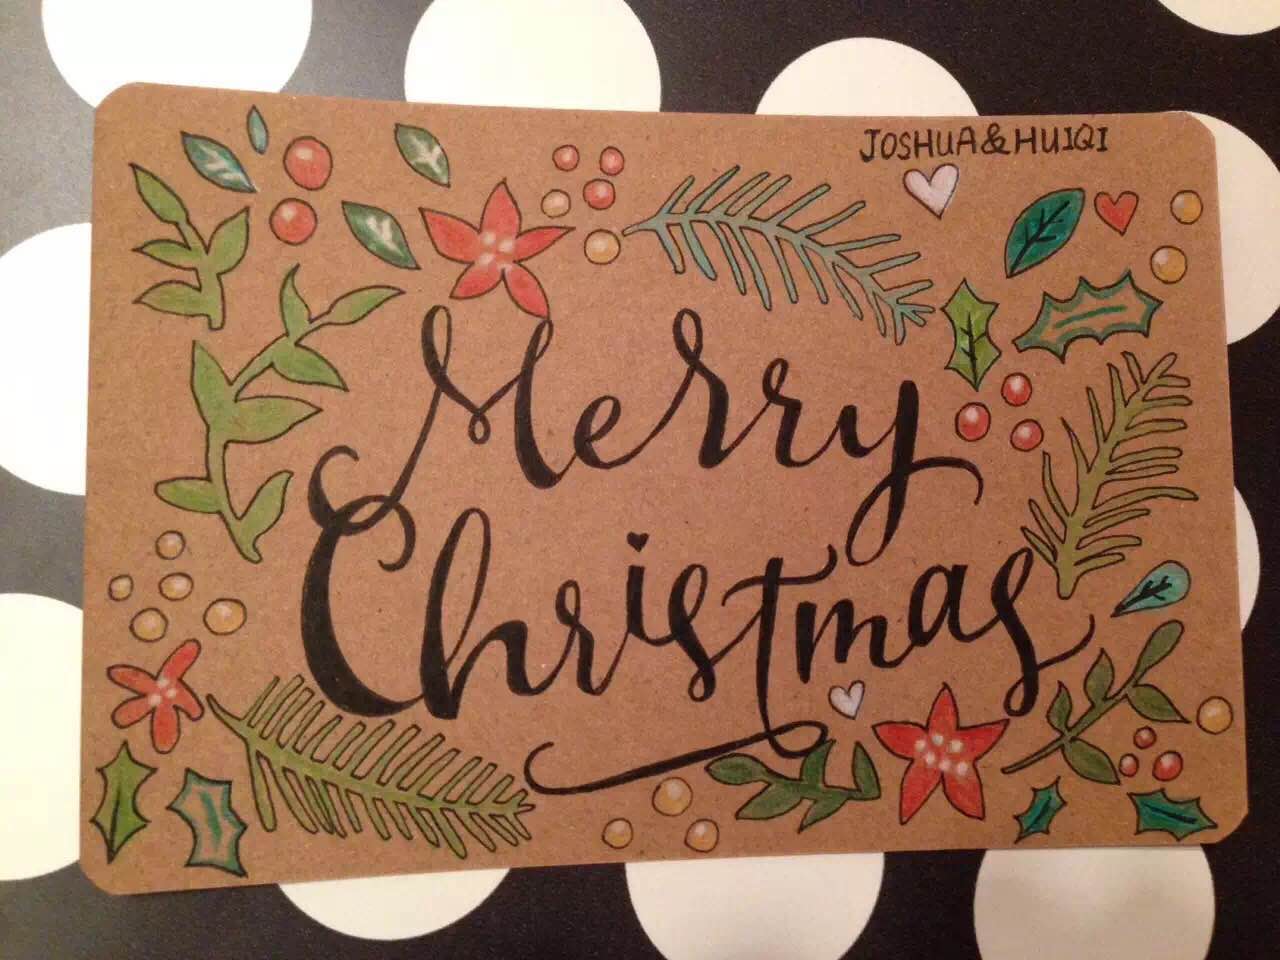 JOSHUA&HUIQI
Merry
Christmas